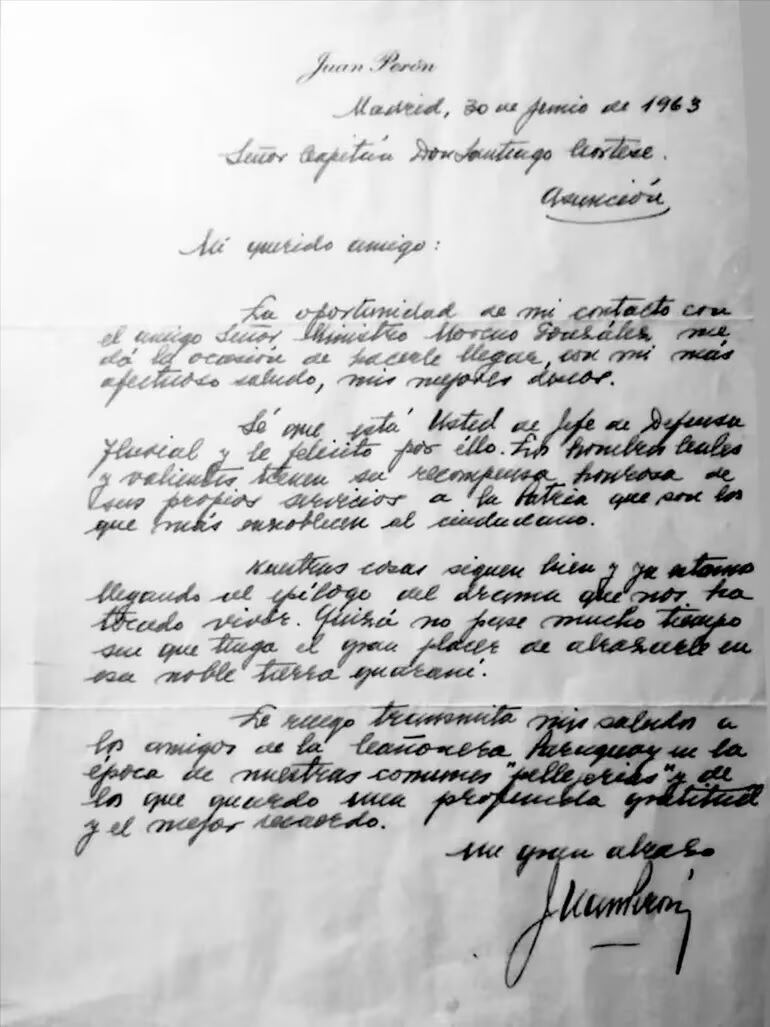 Juan Perón
Madrid, 30 de junio de 1963
Señor Capitán Don Santiago Cortese.
Asunción
Mi querido amigo:
La oportunidad de mi contacto con
el amigo Señor Ministro Moreno González, me
dá la ocasión de hacerle llegar, con mi más
afectuoso saludo, mis mejores deseos.
Sé que está Usted de Jefe de Defensa
Fluvial y le felicito por éllo. Los hombres leales
y valientes tienen su recompensa honrosa de
sus propios servicios a la Patria que son los
que más ennoblecen al ciudadano.
Nuestras cosas siguen bien y ya estamos
llegando al epílogo del drama que nos ha
tocado vivir. Quizá no pase mucho tiempo
sin que tenga el gran placer de abrazarle en
esa noble tierra guaraní.
Le ruego transmita mis saludos a
los amigos de la Cañonera Paraguay en la
época de nuestras comunes "pellejerias" y de
los que guardo una profunda gratitud
y el mejor recuerdo.
Un gran abrazo
Juan Perón